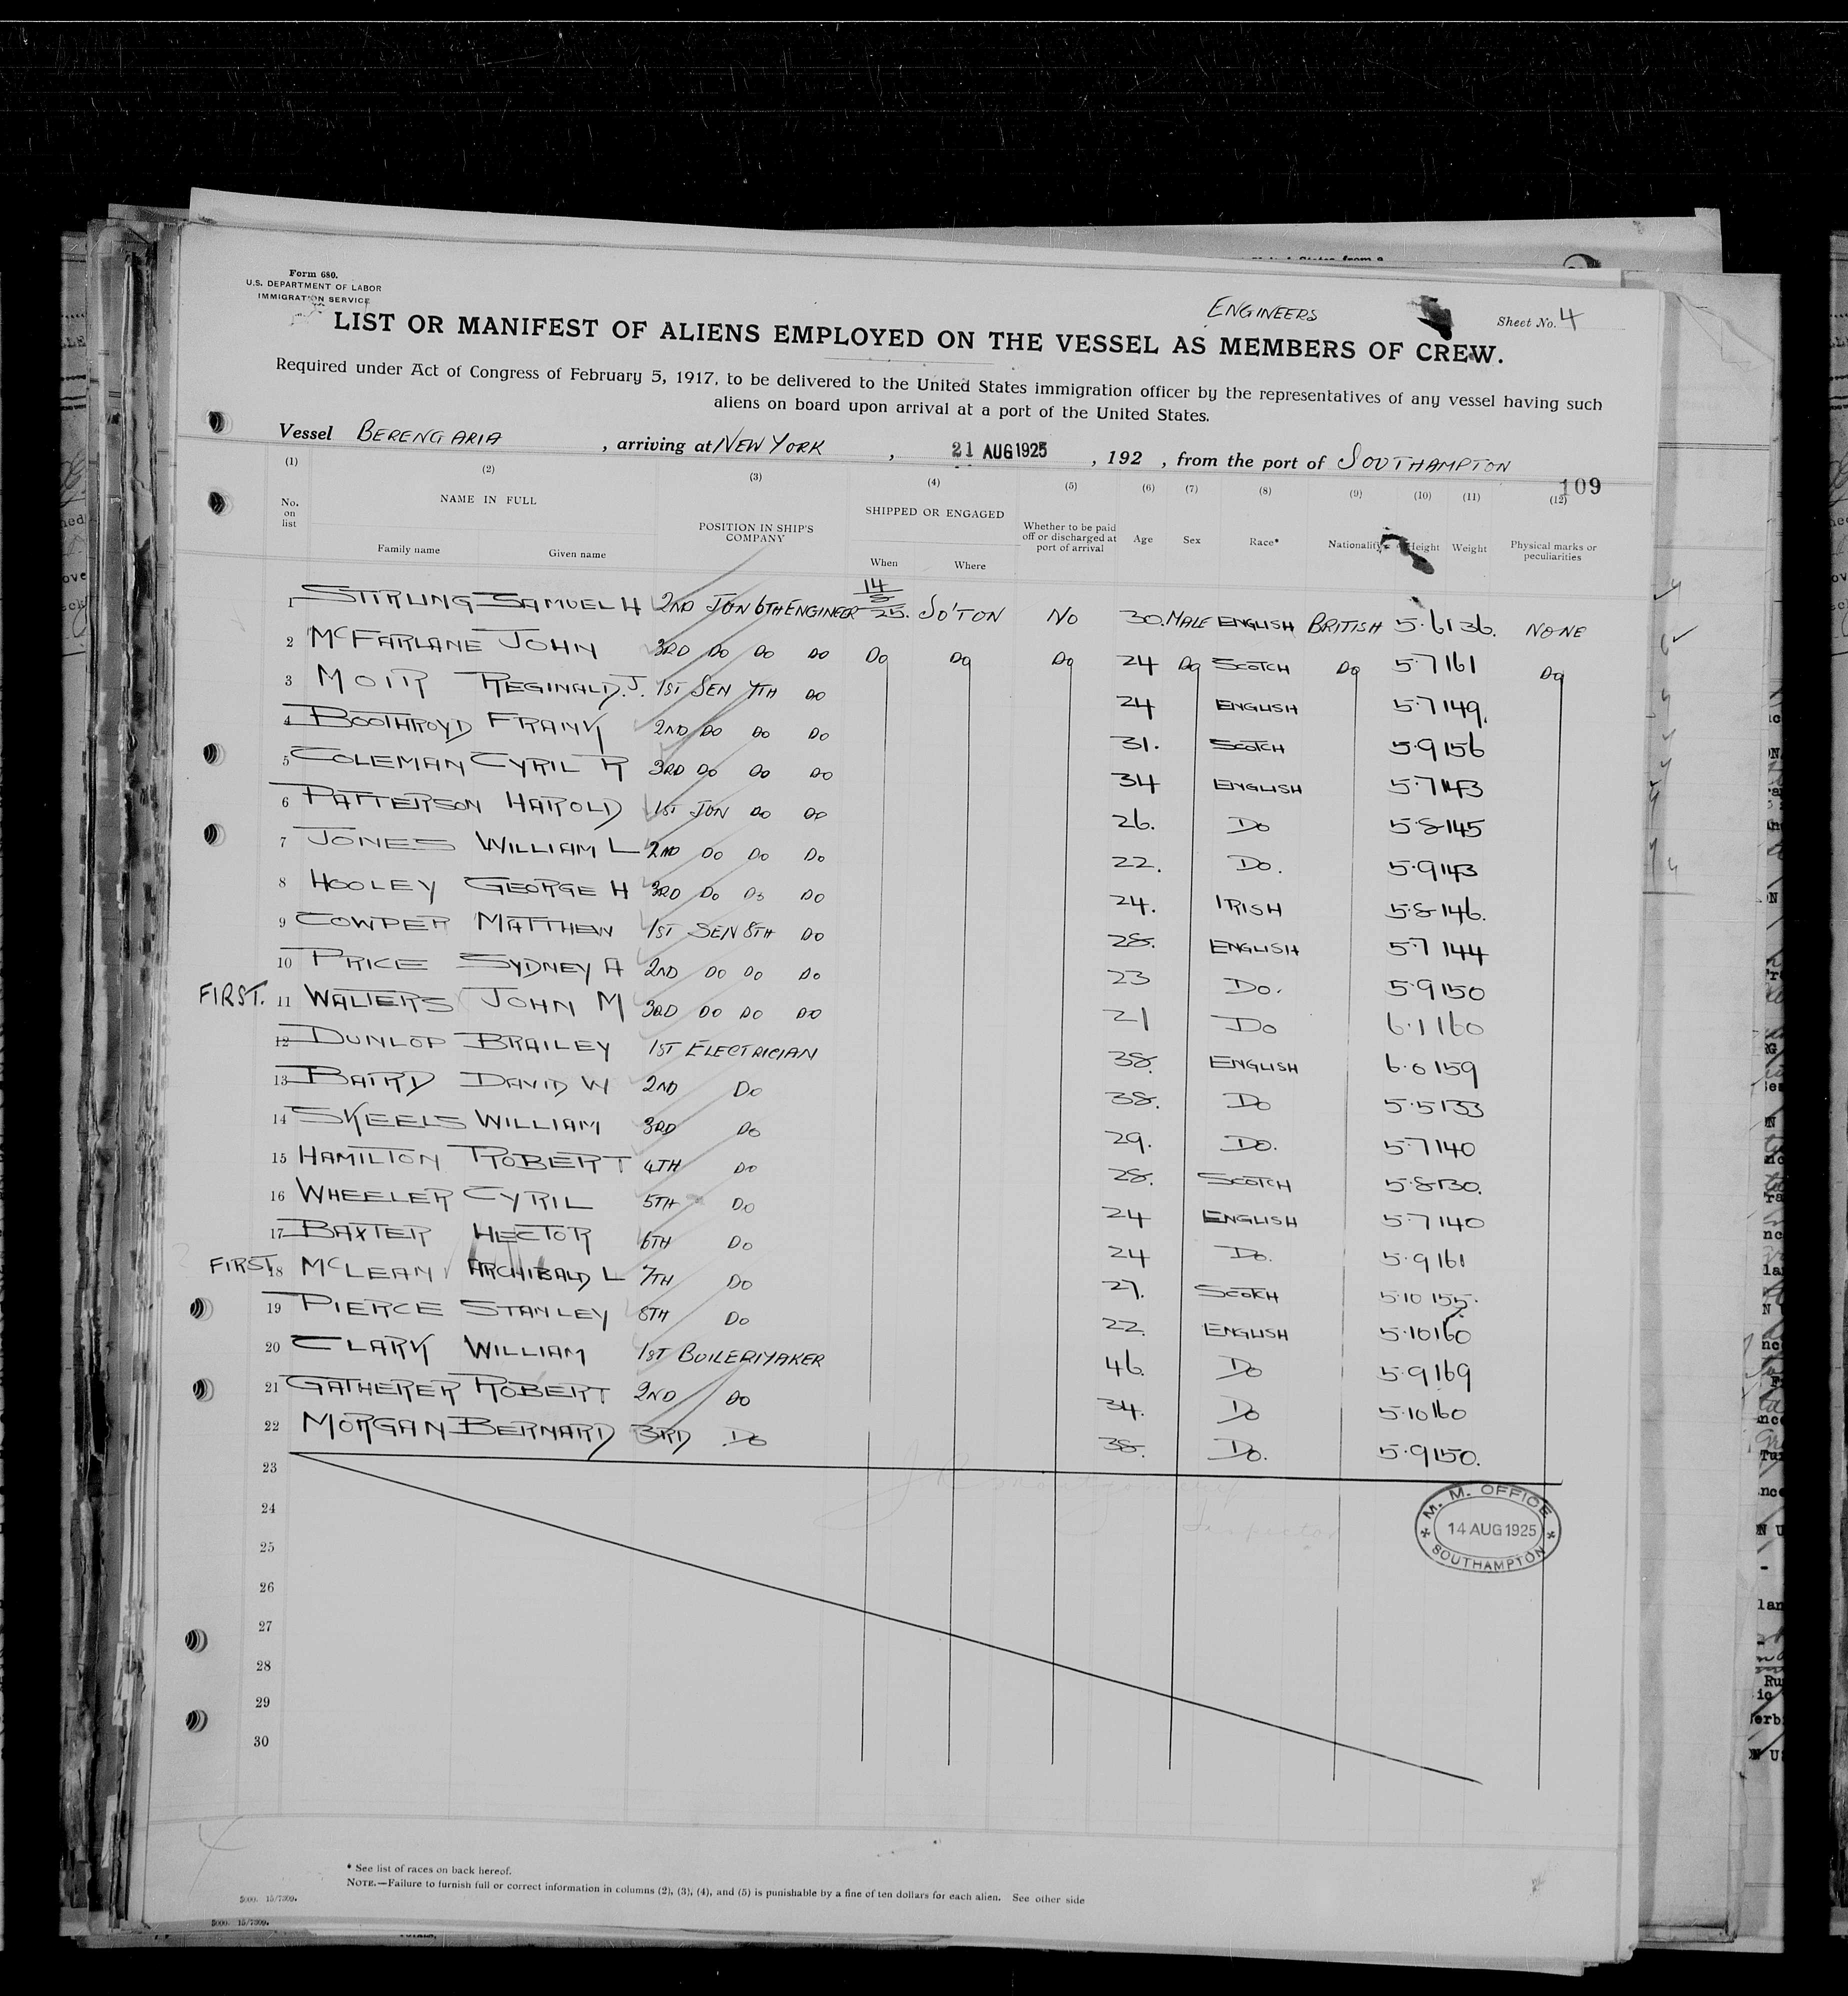 Form 680.
U.S. DEPARTMENT OF LABOR
IMMIGRATION SERVICE
ENGINEERS
Sheet No. 4
LIST OR MANIFEST OF ALIENS EMPLOYED ON THE VESSEL AS MEMBERS OF CREW.
Required under Act of Congress of February 5, 1917, to be delivered to the United States immigration officer by the representatives of any vessel having such
aliens on board upon arrival at a port of the United States.
Vessel BERENGARIA, arriving at NEW YORK, 21 AUG 1925, 192 , from the port of SOUTHAMPTON
109
(1) (2) (3) (4) (5) (6) (7) (8) (9) (10) (11) (12)
No. on list NAME IN FULL Family name Given name POSITION IN SHIP'S COMPANY SHIPPED OR ENGAGED When Where Whether to be paid off or discharged at port of arrival Age Sex Race* Nationality Height Weight Physical marks or peculiarities
1 STIRLING SAMUEL H 2ND JUN 6TH ENGINEER 14/8/25. SO'TON NO 30. MALE ENGLISH BRITISH 5.6 136. NONE
2 McFARLANE JOHN 3RD DO DO DO DO DO DO 24 DO SCOTCH DO 5.7 161 DO
3 MOIR REGINALD. J. 1ST SEN 7TH DO 24 ENGLISH 5.7 149.
4 BOOTHROYD FRANK 2ND DO DO DO 31. SCOTCH 5.9 156
5 COLEMAN CYRIL R 3RD DO DO DO 34 ENGLISH 5.7 143
6 PATTERSON HAROLD 1ST JUN DO DO 26. DO 5.8 145
7 JONES WILLIAM L 2ND DO DO DO 22. DO. 5.9 143
8 HOOLEY GEORGE H 3RD DO DO DO 24. IRISH 5.8 146.
9 COWPER MATTHEW 1ST SEN 8TH DO 28. ENGLISH 5.7 144
10 PRICE SYDNEY A 2ND DO DO DO 23 DO. 5.9 150
FIRST. 11 WALTERS JOHN M 3RD DO DO DO 21 DO 6.1 160
12 DUNLOP BRAILEY 1ST ELECTRICIAN 38. ENGLISH 6.0 159
13 BAIRD DAVID W 2ND DO 38. DO 5.5 133
14 SKEELS WILLIAM 3RD DO 29. DO. 5.7 140
15 HAMILTON ROBERT 4TH DO 28. SCOTCH 5.8 130.
16 WHEELER CYRIL 5TH DO 24 ENGLISH 5.7 140
17 BAXTER HECTOR 6TH DO 24 DO. 5.9 161
FIRST. 18 McLEAN ARCHIBALD L 7TH DO 27. SCOTCH 5.10 155.
19 PIERCE STANLEY 8TH DO 22. ENGLISH 5.10 160
20 CLARK WILLIAM 1ST BOILERMAKER 46. DO 5.9 169
21 GATHERER ROBERT 2ND DO 34. DO 5.10 160
22 MORGAN BERNARD 3RD DO 38. DO. 5.9 150.
23
24
25
26
27
28
29
30
M. M. OFFICE
14 AUG 1925
SOUTHAMPTON
Inspector
* See list of races on back hereof.
NOTE.—Failure to furnish full or correct information in columns (2), (3), (4), and (5) is punishable by a fine of ten dollars for each alien. See other side
5000. 15/7309.
5000. 15/7309.